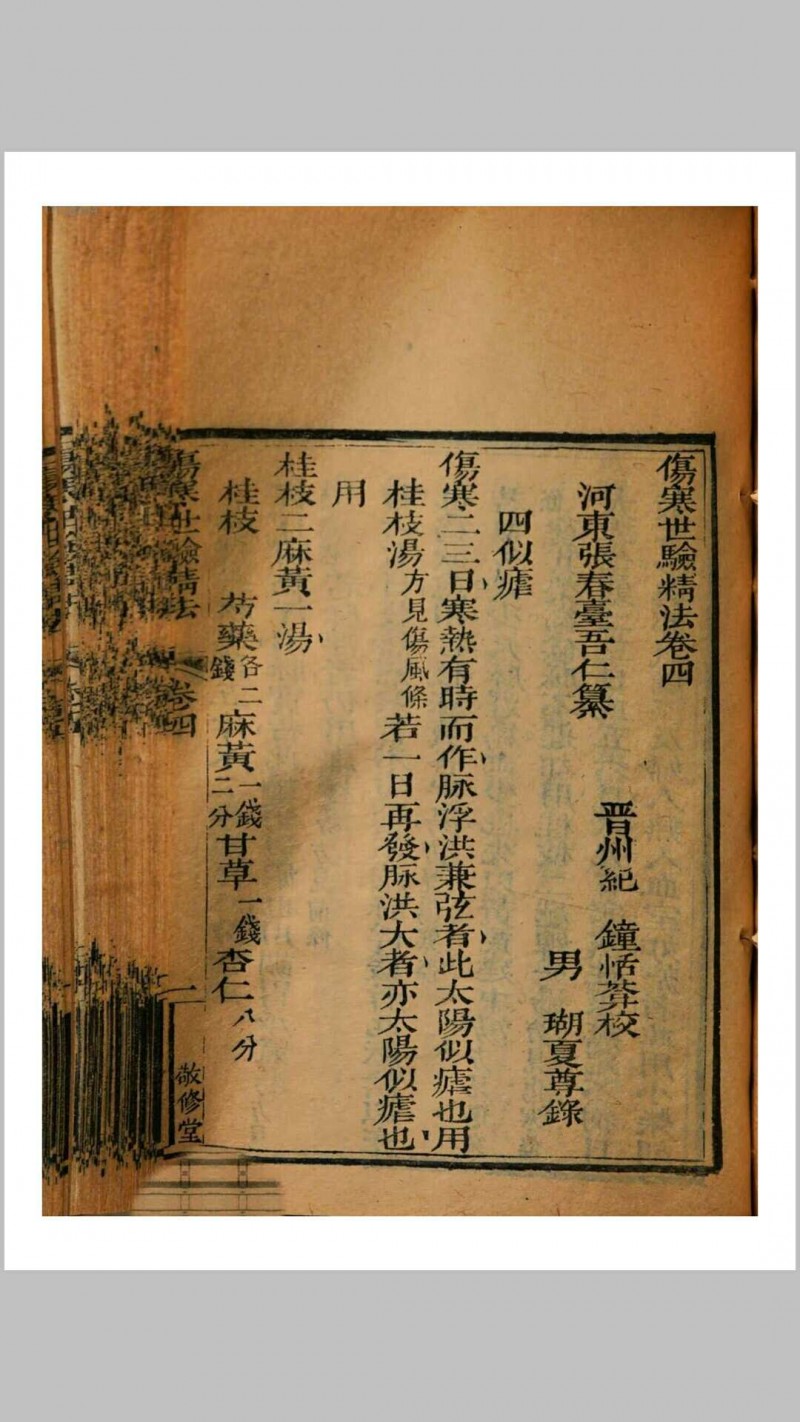 傷寒世驗精法卷四
河東張春臺吾仁纂
晋州紀　鐘恬莽校
男　瑚夏尊錄
四似瘧
傷寒二三日寒熱有時而作脉浮洪兼弦者此太陽似瘧也用
桂枝湯方見傷風條若一日再發脉洪大者亦太陽似瘧也
用
桂枝二麻黃一湯
桂枝　芍藥各二錢麻黃一錢二分甘草一錢杏仁八分
傷寒世驗精法　卷四　一　敬修堂